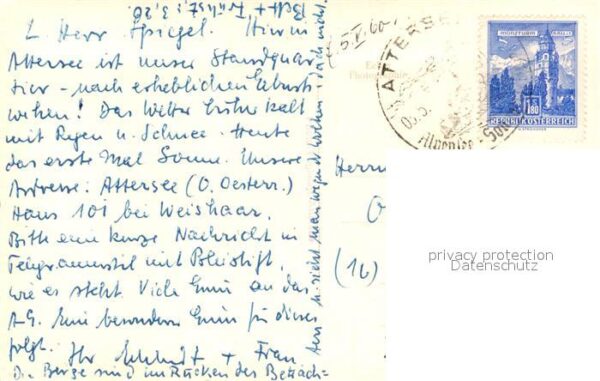 L. Herr Spiegel. Hier in
Attersee ist unser Standquar
tier – nach erheblichen Geburts
wehen! Das Wetter bisher kalt
mit Regen u. Schnee. Heute
das erste Mal Sonne. Unsere
Adresse: Attersee (O. Oesterr.)
Haus 101 bei Weishaar.
Bitte eine kurze Nachricht in
Telegrammstil mit Bleistift,
wie es steht. Viele Grüße an das
A.G. Eine besonderen Gruß für dieses
folgt. Ihr + Frau.
Die Berge sind im Rücken des Betrach=
ters u. nicht man wegen doch nicht.
Bett + Frühst.
5.V.60
ATTERSEE
Herrn
(16)
1.80
REPUBLIK ÖSTERREICH
privacy protection
Datenschutz